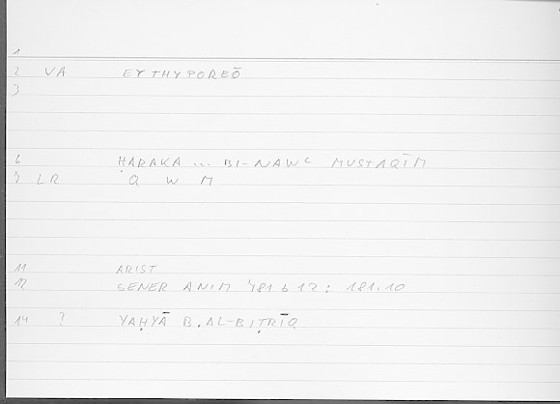 1
2 VA EYTHYPOREŌ
3
6 ḤARAKA ... BI-NAWᶜ MUSTAQĪM
7 LR Q W M
11 ARIST
12 GENER ANIM 781 b 12 : 181.10
14 ? YAḤYĀ B. AL-BIṬRĪQ